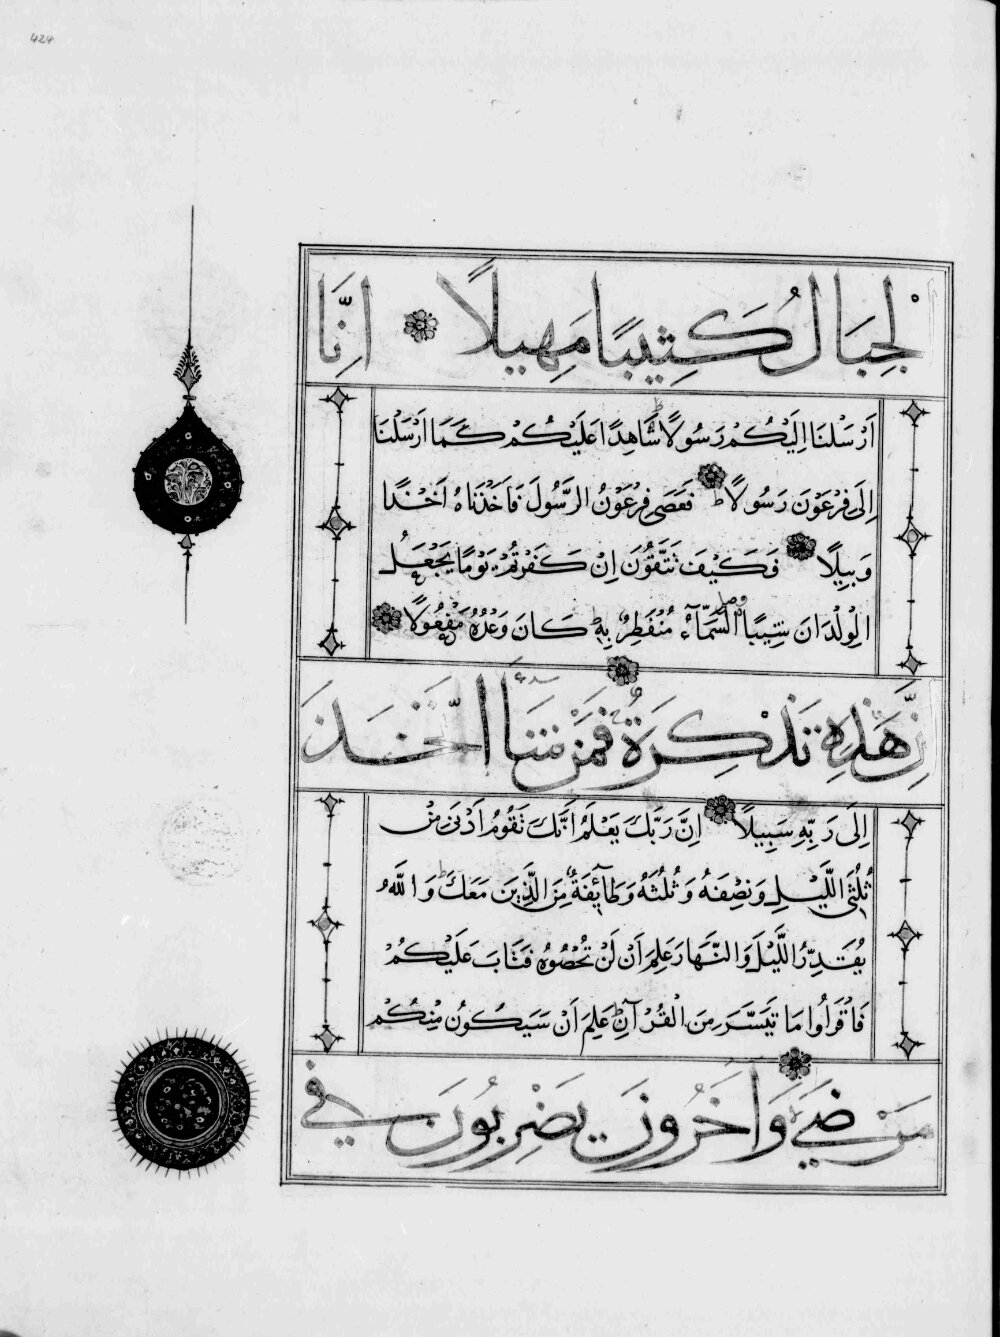 424
لْجِبَالُ كَثِيبًا مَهِيلًا اِنَّا
اَرْسَلْنَا اِلَيْكُمْ رَسُولًا شَاهِدًا عَلَيْكُمْ كَمَا اَرْسَلْنَا
اِلَى فِرْعَوْنَ رَسُولًا فَعَصَى فِرْعَوْنُ الرَّسُولَ فَاَخَذْنَاهُ اَخْذًا
وَبِيلًا فَكَيْفَ تَتَّقُونَ اِنْ كَفَرْتُمْ يَوْمًا يَجْعَلُ
الْوِلْدَانَ شِيبًا السَّمَآءُ مُنْفَطِرٌ بِهِ كَانَ وَعْدُهُ مَفْعُولًا
اِنَّ هَذِهِ تَذْكِرَةٌ فَمَنْ شَآءَ اتَّخَذَ
اِلَى رَبِّهِ سَبِيلًا اِنَّ رَبَّكَ يَعْلَمُ اَنَّكَ تَقُومُ اَدْنَى مِنْ
ثُلُثَىِ اللَّيْلِ وَنِصْفَهُ وَثُلُثَهُ وَطَآئِفَةٌ مِنَ الَّذِينَ مَعَكَ وَاللَّهُ
يُقَدِّرُ اللَّيْلَ وَالنَّهَارَ عَلِمَ اَنْ لَنْ تُحْصُوهُ فَتَابَ عَلَيْكُمْ
فَاقْرَاُوا مَا تَيَسَّرَ مِنَ الْقُرْآنِ عَلِمَ اَنْ سَيَكُونُ مِنْكُمْ
مَرْضَى وَآخَرُونَ يَضْرِبُونَ فِي